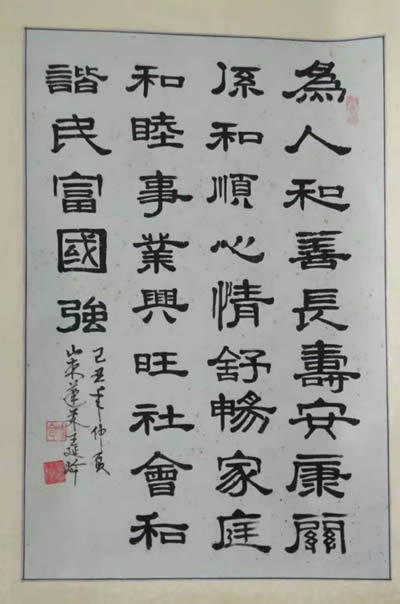 為人和善長壽安康關
係和順心情舒暢家庭
和睦事業興旺社會和
諧民富國強
己丑年仲夏
山東蓬萊